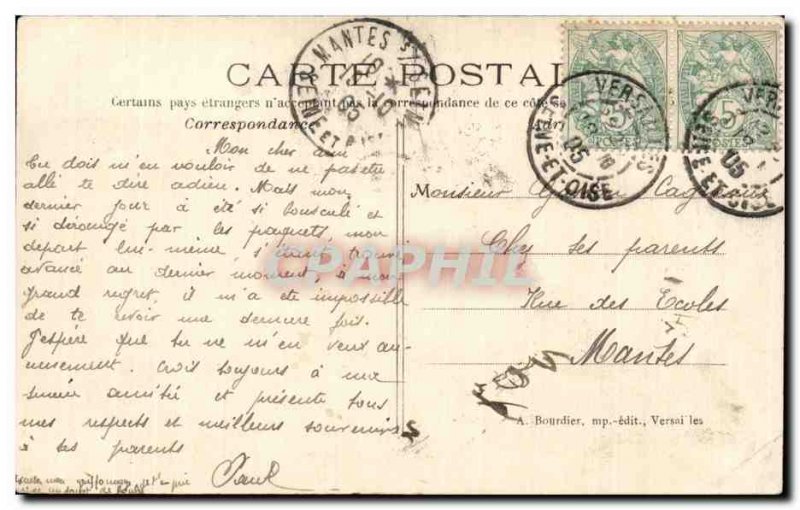 CARTE POSTAL
Certains pays étrangers n'acceptant pas la correspondance de ce côté
Correspondance
MANTES S/SEINE
SEINE ET
05
VERSAILLES
SEINE-ET-OISE
05
5c
POSTES
VERS
SEINE ET OISE
05
5
POSTE
Mon cher ami
Tu dois m'en vouloir de ne pas être
allé te dire adieu. Mais mon
dernier jour à été si bousculé et
si dérangé par les paquets, mon
départ lui-même, s'étant trouvé
avancé au dernier moment, à mon
grand regret, il m'a été impossible
de te revoir une dernière fois.
J'espère que tu ne m'en veux au-
cunement. Crois toujours à ma
sincère amitié et présente tous
mes respects et meilleurs souvenirs
à tes parents
Paul
Monsieur
Chez ses parents
Rue des Ecoles
Mantes
A. Bourdier, imp.-édit., Versailles
CPAPHIL